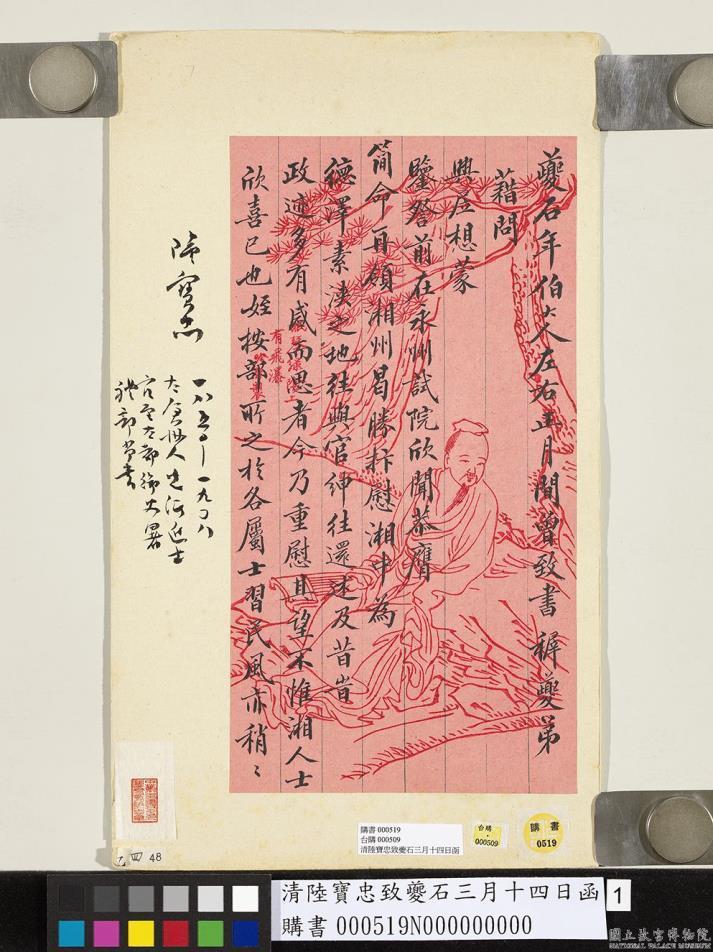 夔石年伯大人左右正月間曾致書稺夔弟
藉問
興居想蒙
鑒詧前在永州試院欣聞恭膺
簡命再領湘州曷勝抃慰湘中為
德澤素浹之地往與官紳往還述及昔旹
政迹多有感而思者今乃重慰其望不惟湘人士
欣喜已也姪按部所之於各屬士習民風亦稍〻
有飛瀑
陸寶忠
一八五〇—一九〇八
太倉州人 光緒進士
官至左都御史署
禮部尚書
九四 48
購書 000519
台購 000509
清陸寶忠致夔石三月十四日函
台購
000509
購書
0519
清陸寶忠致夔石三月十四日函
購書 000519N000000000
1
國立故宮博物院
NATIONAL PALACE MUSEUM